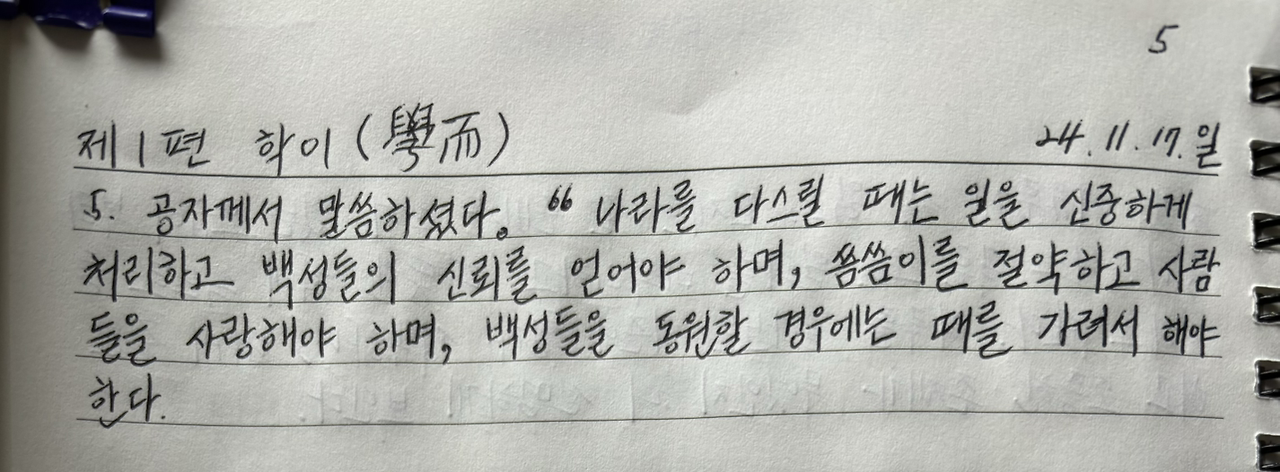 5
제1편 학이(學而) 24.11.17.일
5. 공자께서 말씀하셨다. “나라를 다스릴 때는 일을 신중하게
처리하고 백성들의 신뢰를 얻어야 하며, 씀씀이를 절약하고 사람
들을 사랑해야 하며, 백성들을 동원할 경우에는 때를 가려서 해야
한다.